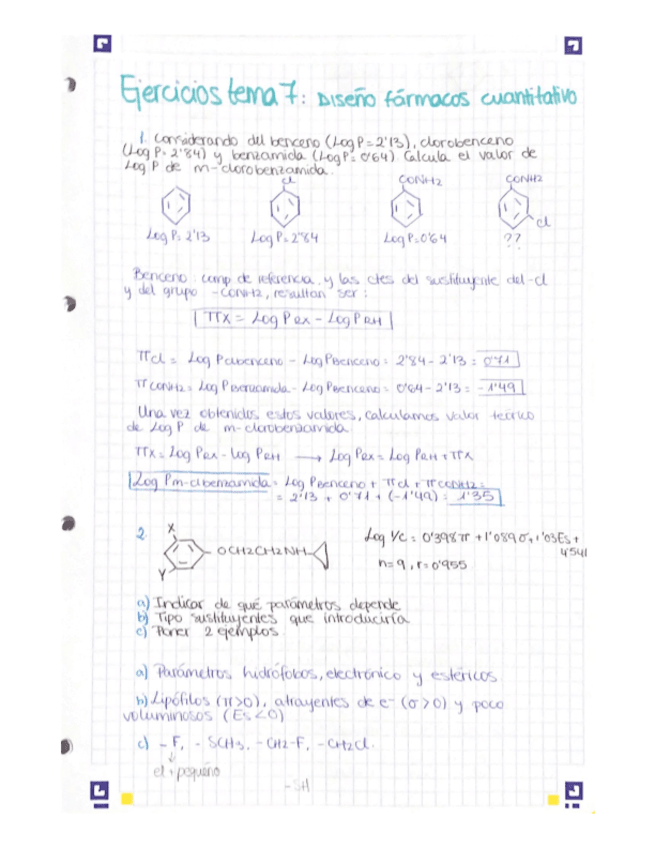 Ejercicios tema 7: Diseño fármacos cuantitativo
1. Considerando del benceno (Log P = 2'13), clorobenceno
(Log P = 2'84) y benzamida (Log P = 0'64). Calcula el valor de
Log P de m-clorobenzamida.
Cl CONH2 CONH2
Cl
Log P = 2'13 Log P = 2'84 Log P = 0'64 ??
Benceno: comp de referencia, y las ctes del sustituyente del -Cl
y del grupo -CONH2, resultan ser:
πX = Log PRX - Log PRH
πCl = Log Pclbenceno - Log Pbenceno = 2'84 - 2'13 = 0'71
πCONH2 = Log Pbenzamida - Log Pbenceno = 0'64 - 2'13 = -1'49
Una vez obtenidos estos valores, calculamos valor teórico
de Log P de m-clorobenzamida.
πX = Log PRX - Log PRH → Log PRX = Log PRH + πX
Log Pm-clbenzamida = Log Pbenceno + πCl + πCONH2 =
= 2'13 + 0'71 + (-1'49) = 1'35
2. X
Y
OCH2CH2NH
Log 1/C = 0'398π + 1'089σ + 1'03Es +
4'541
n = 9, r = 0'955
a) Indicar de qué parámetros depende
b) Tipo sustituyentes que introduciría
c) Poner 2 ejemplos.
a) Parámetros hidrófobos, electrónico y estéricos
b) Lipófilos (π>0), atrayentes de e- (σ>0) y poco
voluminosos (Es<0)
c) -F, -SCH3, -CH2-F, -CH2Cl.
↓
el + pequeño
-SH